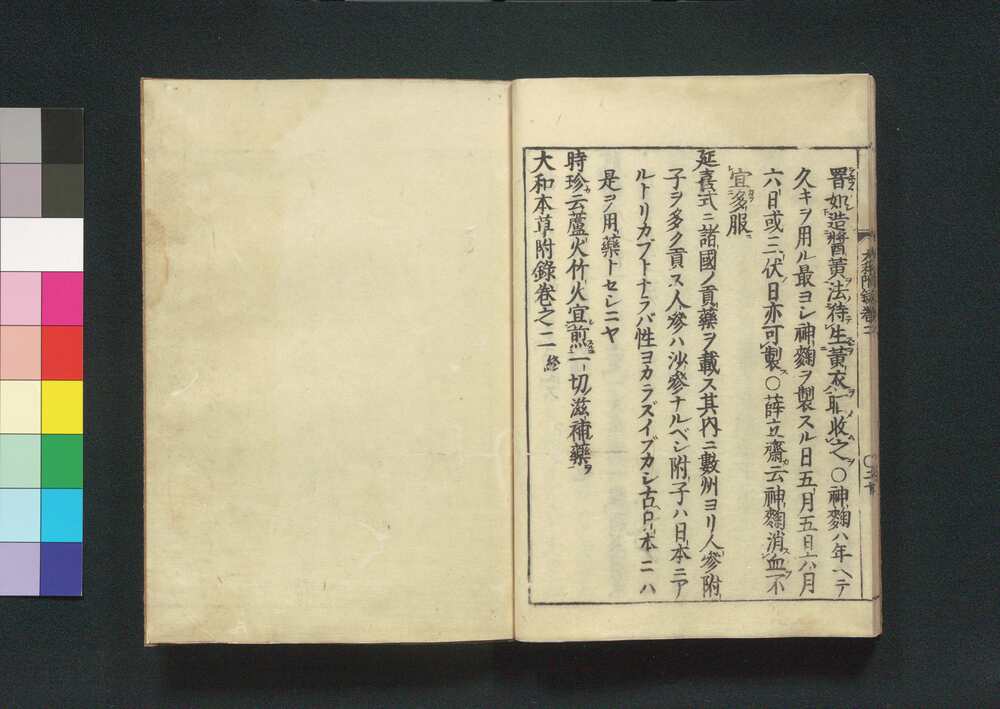 罯如造醬黄法待生黄衣取收之〇神麴ハ年ヘテ
久キヲ用ル最ヨシ神麴ヲ製スル日五月五日六月
六日或三伏日亦可製〇薛立齋云神麴消血不
宜多服
延喜式ニ諸國ノ貢藥ヲ載ス其内ニ數州ヨリ人參附
子ヲ多ク貢ス人參ハ沙參ナルベシ附子ハ日本ニア
ルトリカブトナラバ性ヨカラズイブカシ古日本ニハ
是ヲ用藥トセシニヤ
時珍云蘆火竹火宜煎一切滋補藥
大和本草附錄卷之二 終